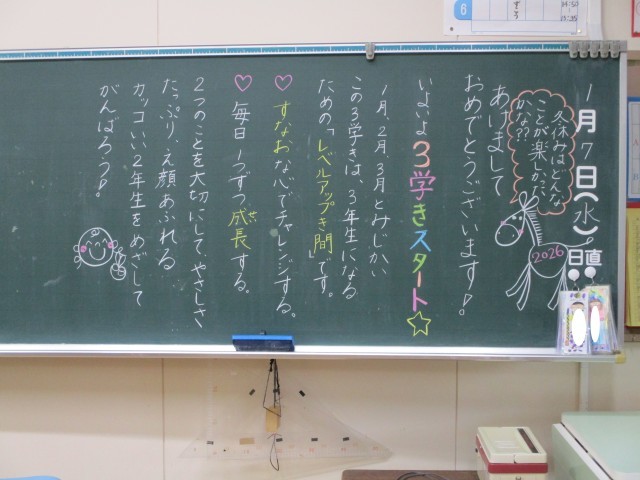 1月7日(水)
日直
冬休みはどんな
ことが楽しかった
かな??
2026
あけまして
おめでとうございます♪。
いよいよ3学きスタート☆
1月、2月、3月とみじかい
この3学きは、3年生になる
ための「レベルアップき間」です。
♡すなおな心でチャレンジする。
♡毎日1つずつ成長する。
せい
2つのことを大切にして、やさしさ
たっぷり、え顔あふれる
カッコいい2年生をめざして
がんばろう♪。
6
14:50
15:35